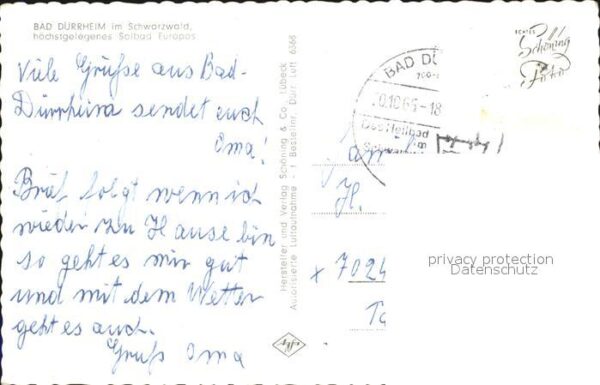 BAD DÜRRHEIM im Schwarzwald,
höchstgelegenes Solbad Europas
Viele Grüße aus Bad-
Dürrheim sendet euch
Oma!
Brief folgt wenn ich
wieder zu Hause bin
so geht es mir gut
und mit dem Wetter
geht es auch.
Gruß Oma
Hersteller und Verlag Schöning & Co., Lübeck
Autorisierte Luftaufnahme - 1 Bestellnr. Dürr. Luft 6366
BAD DÜ
.10.65-18
Das Heilbad
im
ECHTES
Schöning
Foto
Fam
H.
x 7024
privacy protection
Datenschutz